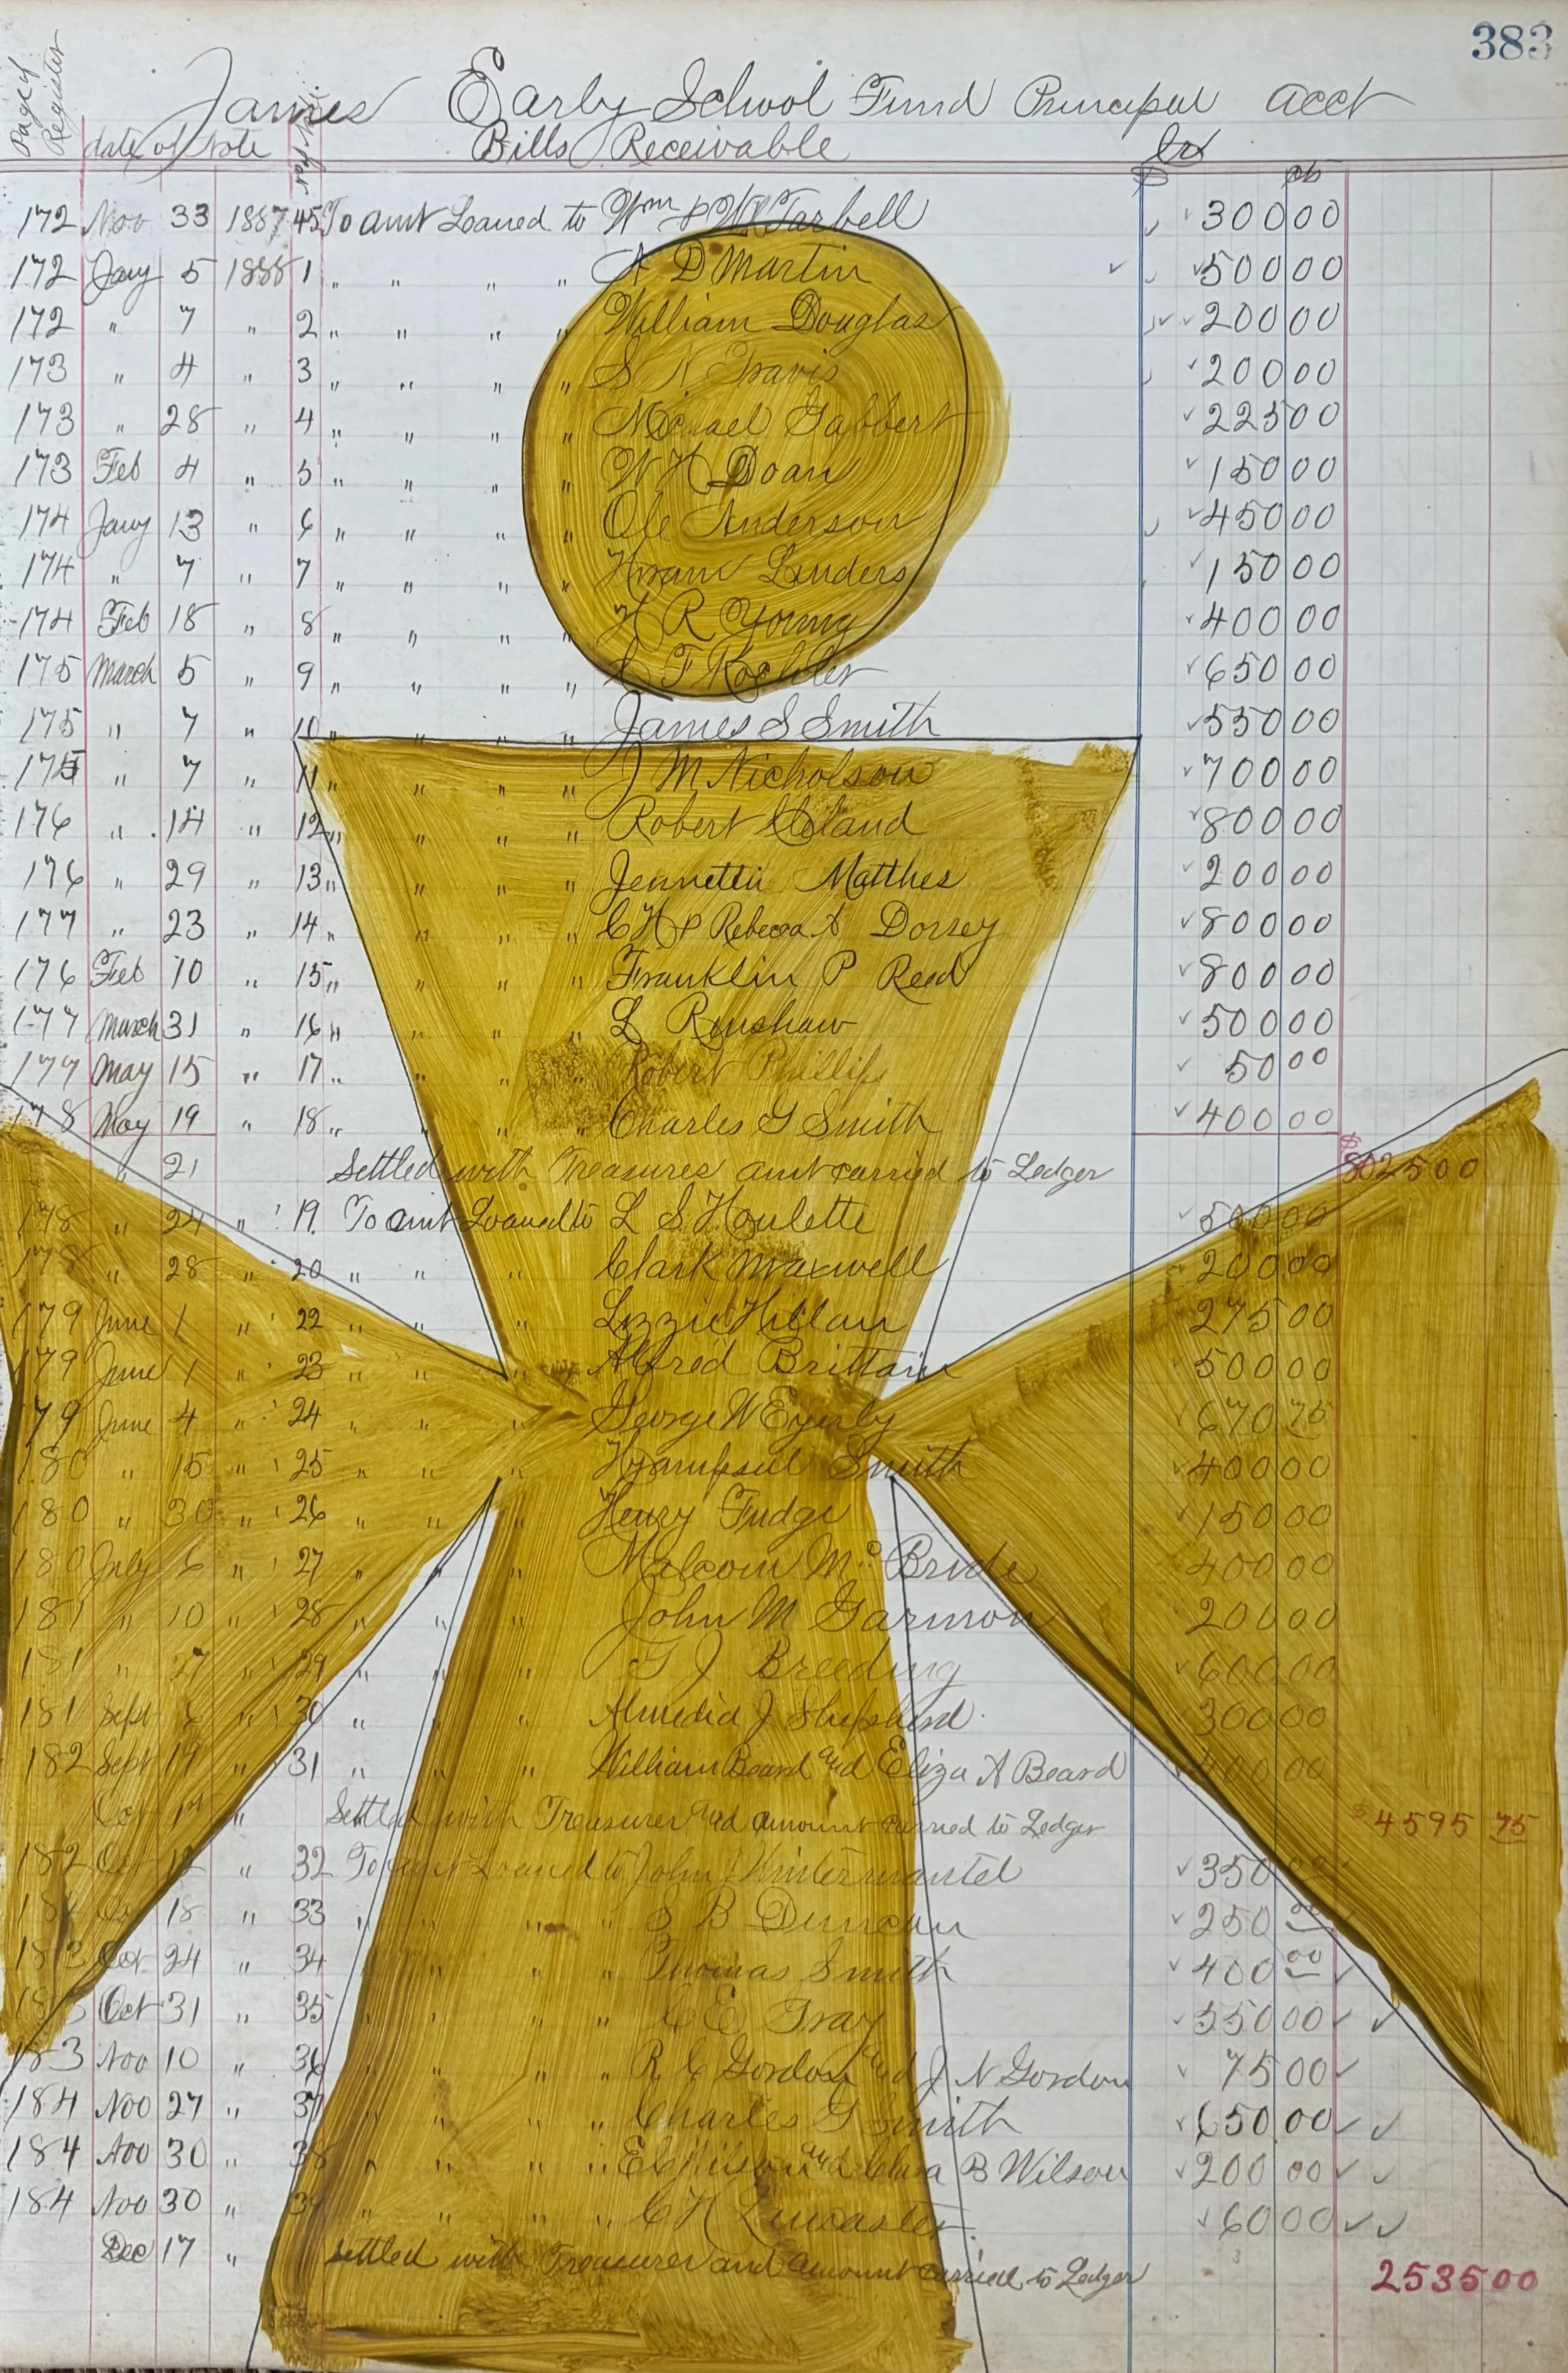 383
Page of Register
James Early School Fund Principal acct
date of Note Bills Receivable Dr
$ cts
172 Nov 33 1887 45 To amt Loaned to Wm & W Tarbell 300 00
172 Jany 5 1888 1 " " " " A D Martin 500 00
172 " 7 " 2 " " " " William Douglas 200 00
173 " 4 " 3 " " " " S N Travis 200 00
173 " 28 " 4 " " " " Michael Gabbert 225 00
173 Feb 4 " 5 " " " " W H Doan 150 00
174 Jany 13 " 6 " " " " Ole Anderson 450 00
174 " 7 " 7 " " " " Hiram Linders 150 00
174 Feb 18 " 8 " " " " H R Young 400 00
175 March 5 " 9 " " " " F Koehler 650 00
175 " 7 " 10 " " " " James S Smith 550 00
175 " 7 " 11 " " " " J M Nicholson 700 00
176 " 14 " 12 " " " " Robert Cleland 800 00
176 " 29 " 13 " " " " Jennettie Matthes 200 00
177 " 23 " 14 " " " " C H & Rebecca A Dorsey 800 00
176 Feb 10 " 15 " " " " Franklin P Reed 800 00
177 March 31 " 16 " " " " L Renshaw 500 00
177 May 15 " 17 " " " " Robert Phillips 50 00
178 May 19 " 18 " " " " Charles G Smith 400 00
" 21 Settled with Treasures amt carried to Ledger $8025 00
178 " 24 " 19 To amt Loaned to L S Houlette 500 00
178 " 28 " 20 " " " Clark Maxwell 200 00
179 June 1 " 22 " " " Lizzie Hillan 275 00
179 June 1 " 23 " " " Alfred Brittain 500 00
179 June 4 " 24 " " " George W Eyerly 670 75
180 " 15 " 25 " " " Smith 400 00
180 " 30 " 26 " " " Henry Fudge 150 00
180 July 6 " 27 " " " Malcom Mc Bride 400 00
181 " 10 " 28 " " " John M Garmon 200 00
181 " 27 " 29 " " " G J Breeding 600 00
181 Sept 6 " 30 " " " Almedia J Shepherd 300 00
182 Sept 19 " 31 " " " William Beard and Eliza A Beard 400 00
Oct 1st " Settled with Treasurer and amount carried to Ledger $4595 75
182 Oct 12 " 32 To amt Loaned to John Wintermantel 350 00
182 Oct 18 " 33 " " " " S B Duncan 250 00
183 Oct 24 " 34 " " " Thomas Smith 400 00
183 Oct 31 " 35 " " " " C E Gray 550 00
183 Nov 10 " 36 " " " " R C Gordon and J N Gordon 75 00
184 Nov 27 " 37 " " " " Charles G Smith 650 00
184 Nov 30 " 38 " " " " E C Wilson and Clara B Wilson 200 00
184 Nov 30 " 39 " " " " C H Lancaster 60 00
Dec 17 " settled with Treasurer and amount carried to Ledger 2535 00